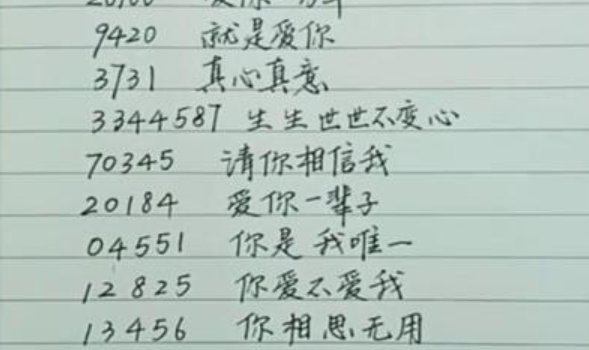 9420 就是爱你
3731 真心真意
3344587 生生世世不变心
70345 请你相信我
20184 爱你一辈子
04551 你是我唯一
12825 你爱不爱我
13456 你相思无用